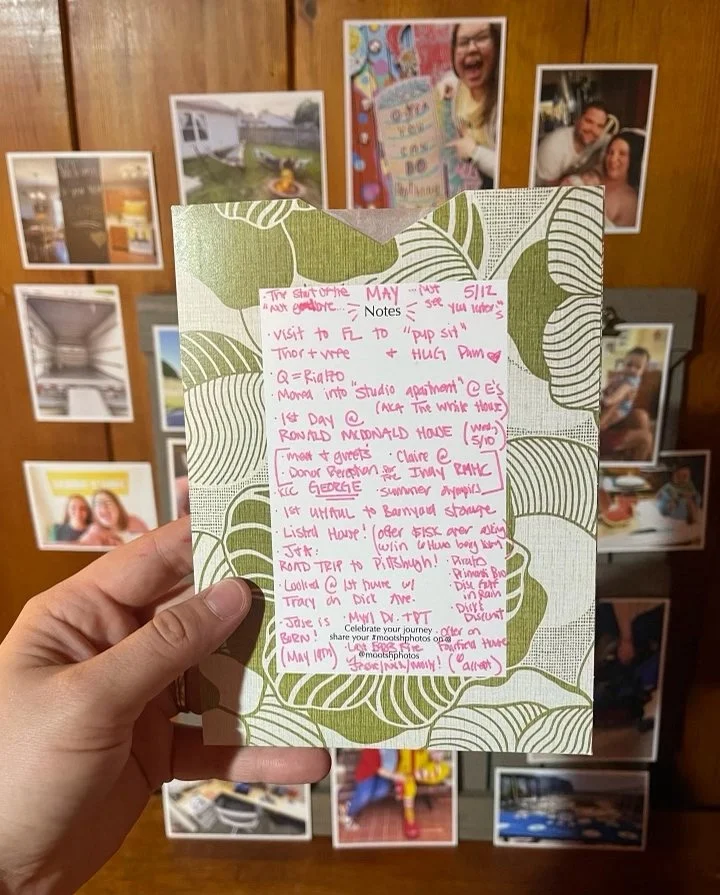 OH
YOU
CAN
DO
· The start of the MAY ... not 5/12
"not goodbye... see you later"s
Notes
· Visit to FL to "pup sit"
Thor + + HUG Dum
· Q = Rialto
· Moved into "studio apartment" @ E's
(AKA The White House)
· 1st Day @
RONALD MCDONALD HOUSE (Wed, 5/10)
· meet + greets · Claire @
· Donor Reception for the Indy RMHC
· KCC GEORGE · summer olympics
· 1st UHAUL to Barnyard storage
· Listed House! (offer $15K over asking
w/in 6 Hours being
J+A:
ROAD TRIP to Pittsburgh! · Pirates
· Primanti Bro
· Looked @ 1st house w/ · Disc Golf
in Rain
Tracy on Dick Ave. · Dick's
Discount
· Jake is · Myrl Dr. TPT
BORN!
Celebrate your journey
share your #mootshphotos on
@mootshphotos
· offer on
Fairfield House
(May 19th) · Last Fire
(& accept)